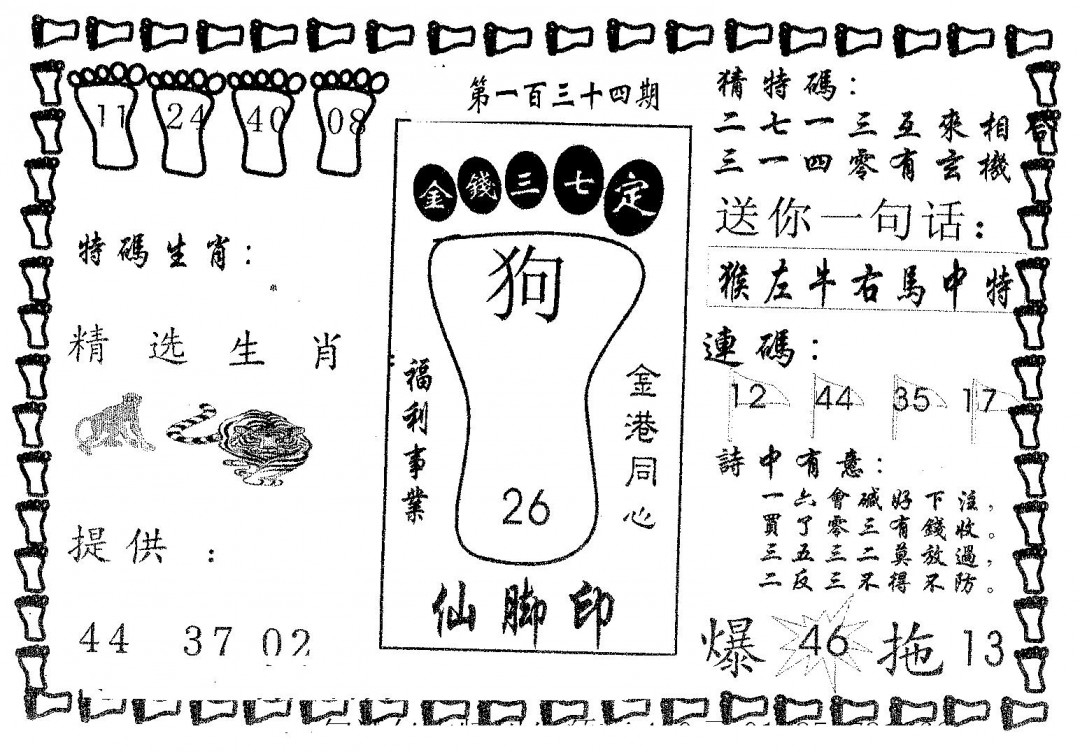 11 24 40 08
特碼生肖：
精选生肖
提供：
44 37 02
第一百三十四期
金錢三七定
狗
福利事業
金港同心
26
仙脚印
猜特碼：
二七一三五來相
三一四零有玄機
送你一句话：
猴左牛右馬中特
連碼：
12 44 35 17
詩中有意：
一六會碱好下注，
買了零三有錢收。
三五三二莫放過，
二反三不得不防。
爆 46 拖 13